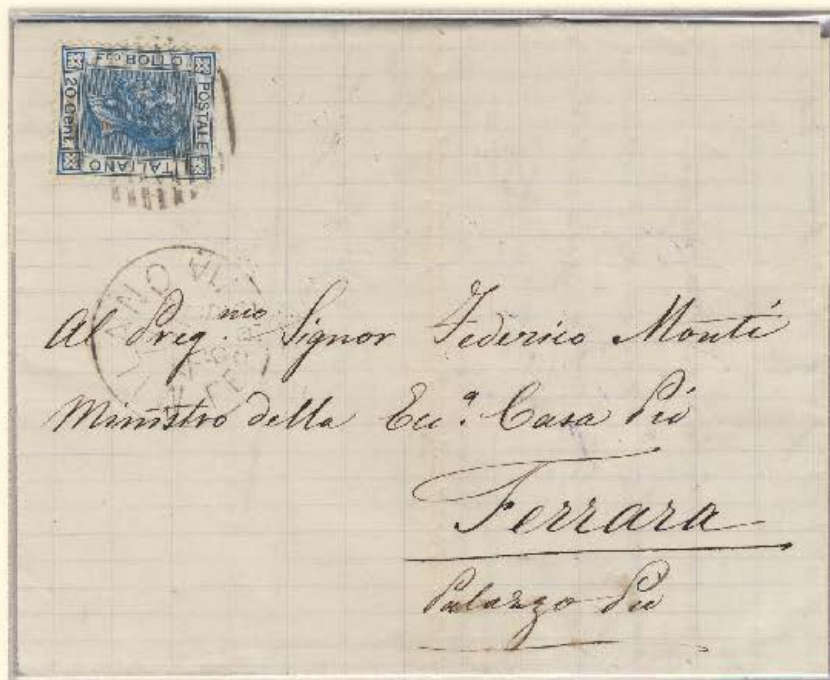 FCO BOLLO
POSTALE
ITALIANO
20 Cent.
MILANO
Al Preg.mo Signor Federico Monti
Ministro della Ecc.a Casa Pio
Ferrara
Palazzo Pio